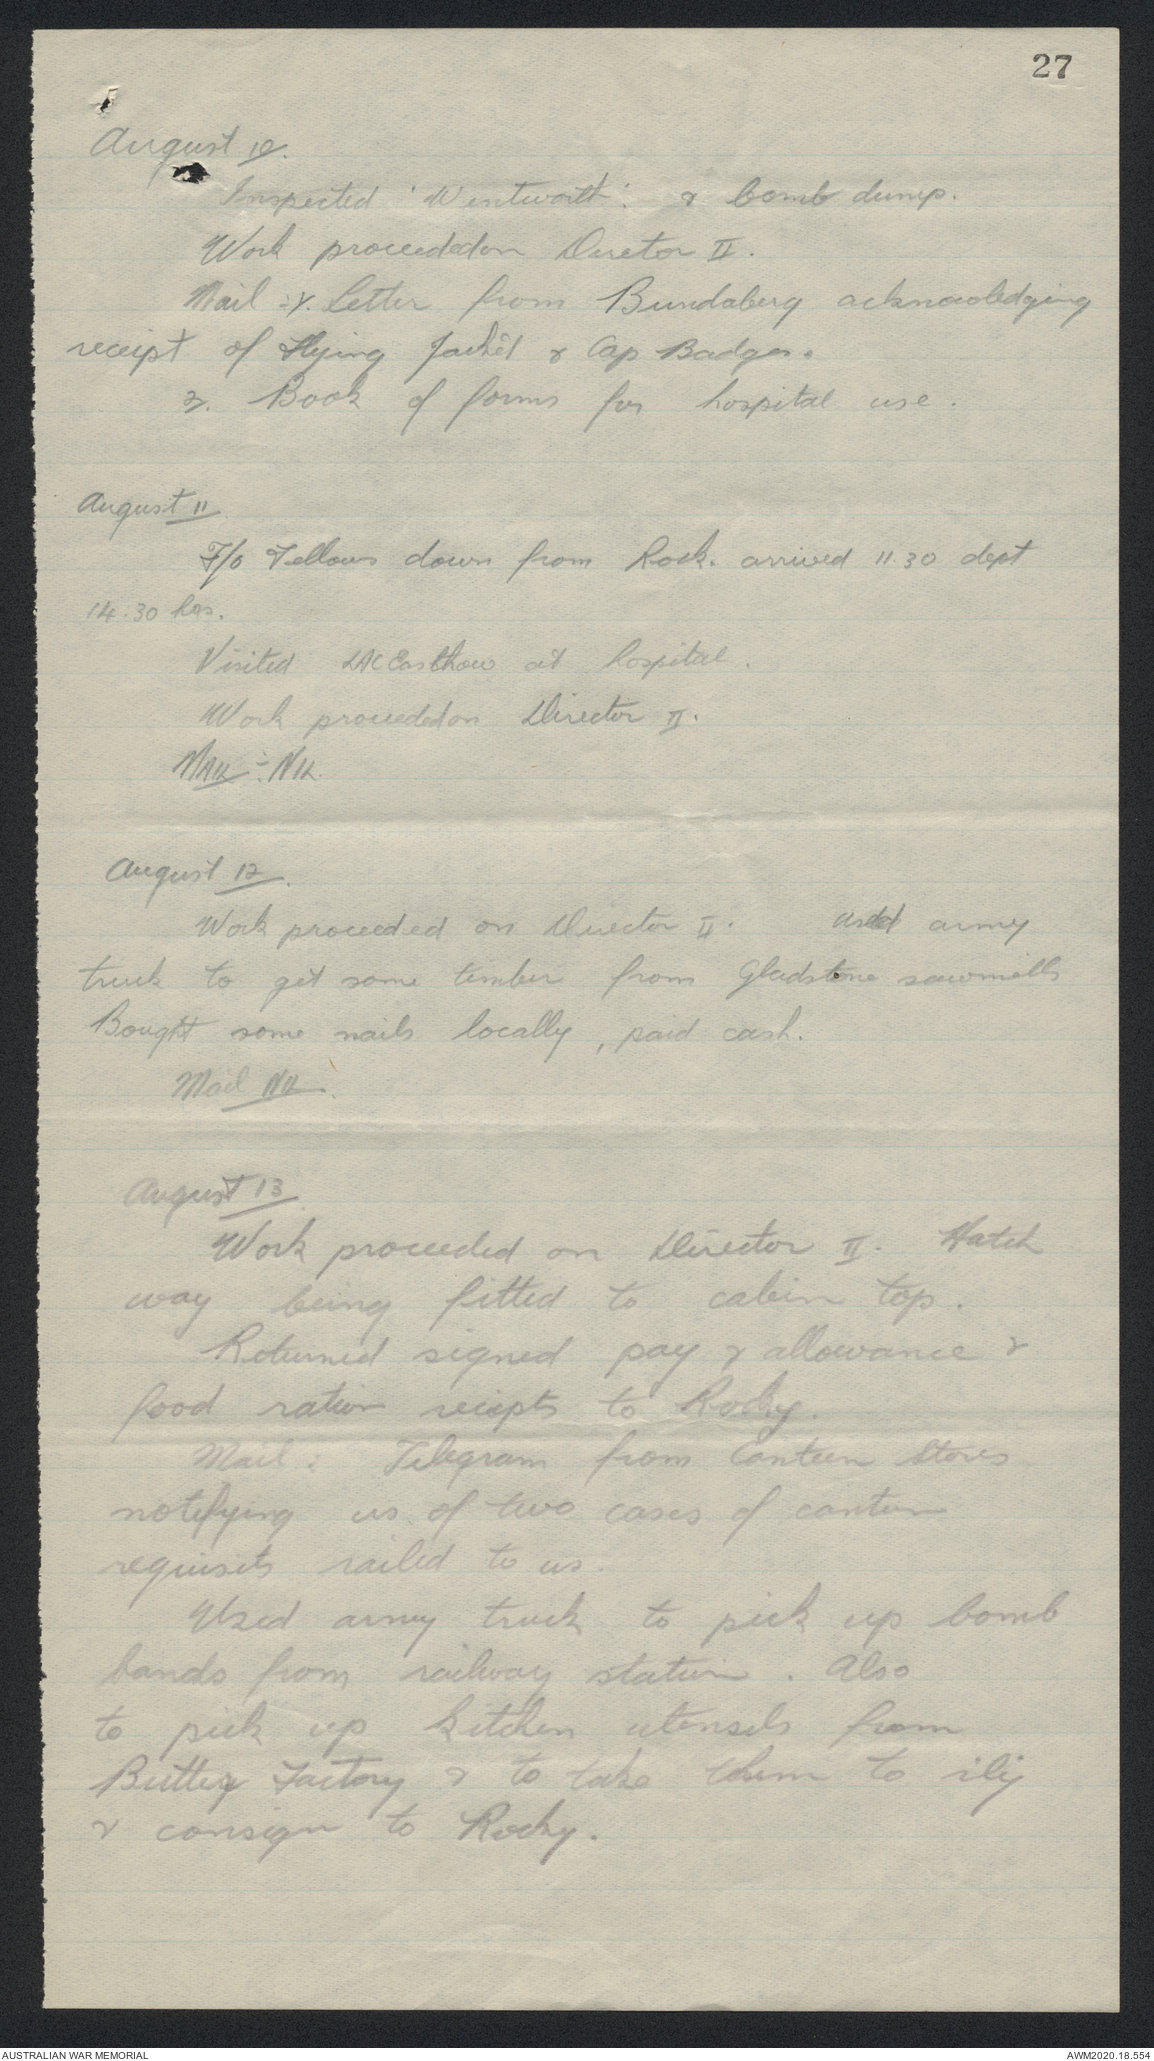 27
August 10.
Inspected 'Wentworth'. & bomb dump.
Work proceeded on Director II.
Mail :- 1. Letter from Bundaberg acknowledging
receipt of Flying Jacket & Cap Badges.
2. Book of forms for hospital use.
August 11
F/O Fellows down from Rock. arrived 11.30 dept
14.30 hrs.
Visited LAC Easthow at hospital.
Work proceeded on Director II.
MAIL :- NIL.
August 12.
Work proceeded on Director II. used army
truck to get some timber from Gladstone sawmills
Bought some nails locally, paid cash.
Mail NIL.
August 13
Work proceeded on Director II. Hatch
way being fitted to cabin top.
Returned signed pay & allowance &
food ration reciepts to Rocky.
Mail : Telegram from Canteen Stores
notifying us of two cases of canteen
requisits railed to us.
Used army truck to pick up bomb
bands from railway station. Also
to pick up kitchen utensils from
Butter Factory & to take them to
& consign to Rocky.
AUSTRALIAN WAR MEMORIAL
AWM2020.18.554